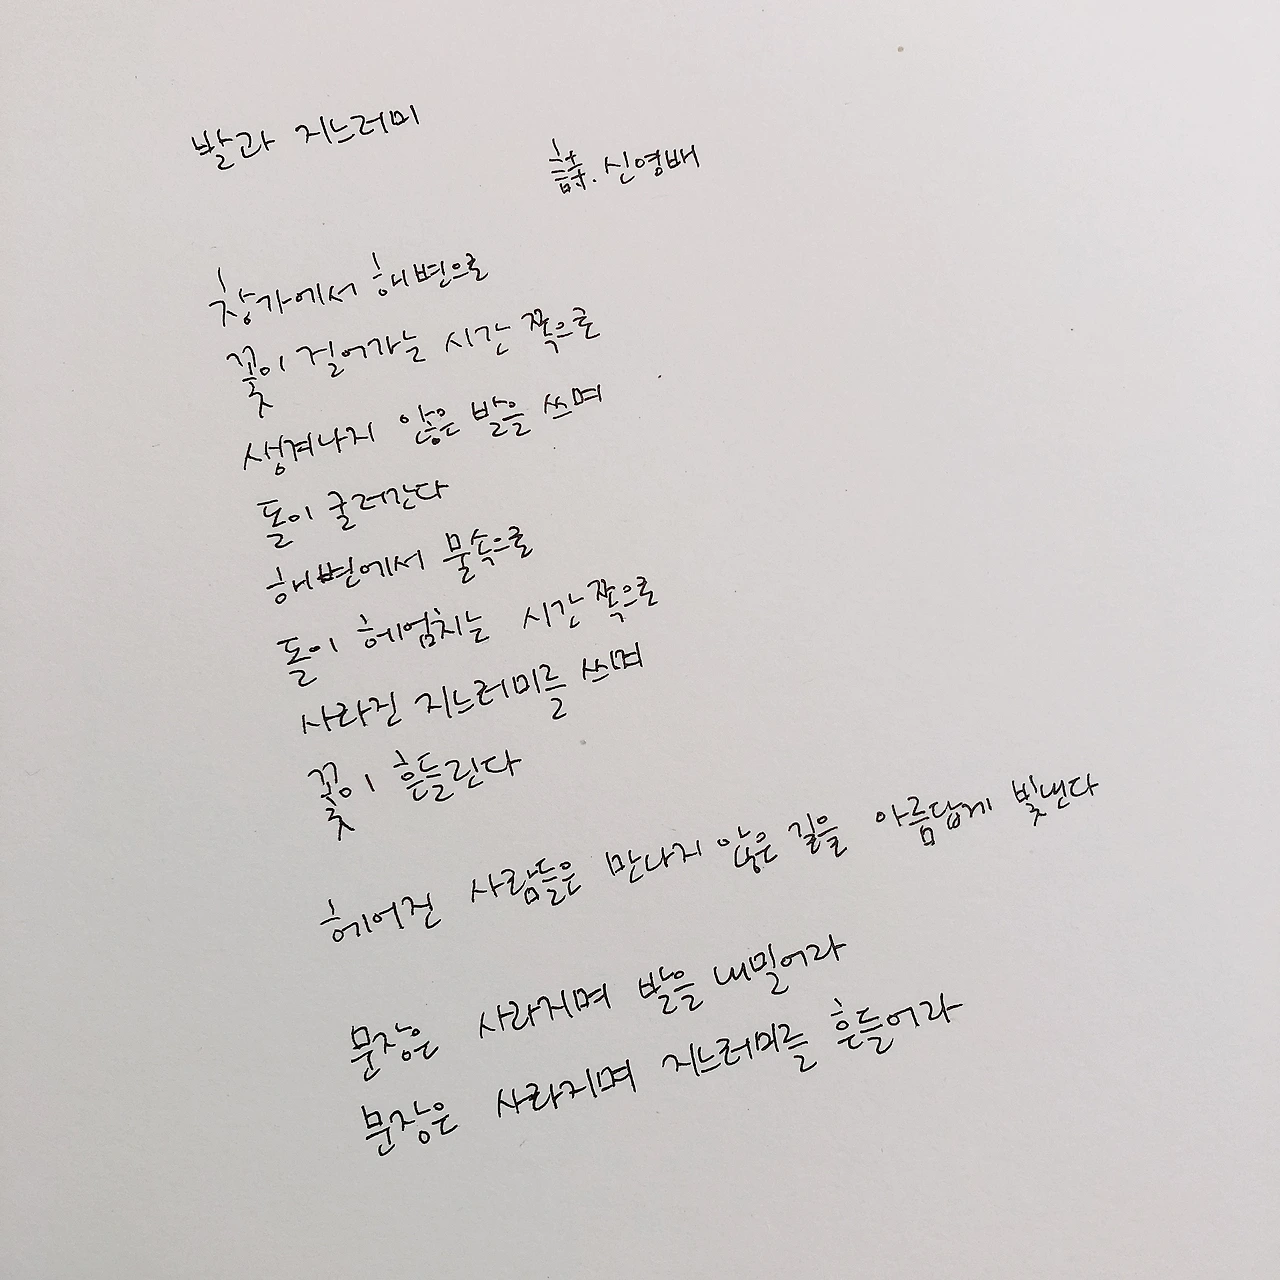 발과 지느러미
詩. 신영배
창가에서 해변으로
꽃이 걸어가는 시간 쪽으로
생겨나지 않은 발을 쓰며
돌이 굴러간다
해변에서 물속으로
돌이 헤엄치는 시간 쪽으로
사라진 지느러미를 쓰며
꽃이 흔들린다
헤어진 사람들은 만나지 않은 길을 아름답게 빛낸다
문장은 사라지며 발을 내밀어라
문장은 사라지며 지느러미를 흔들어라